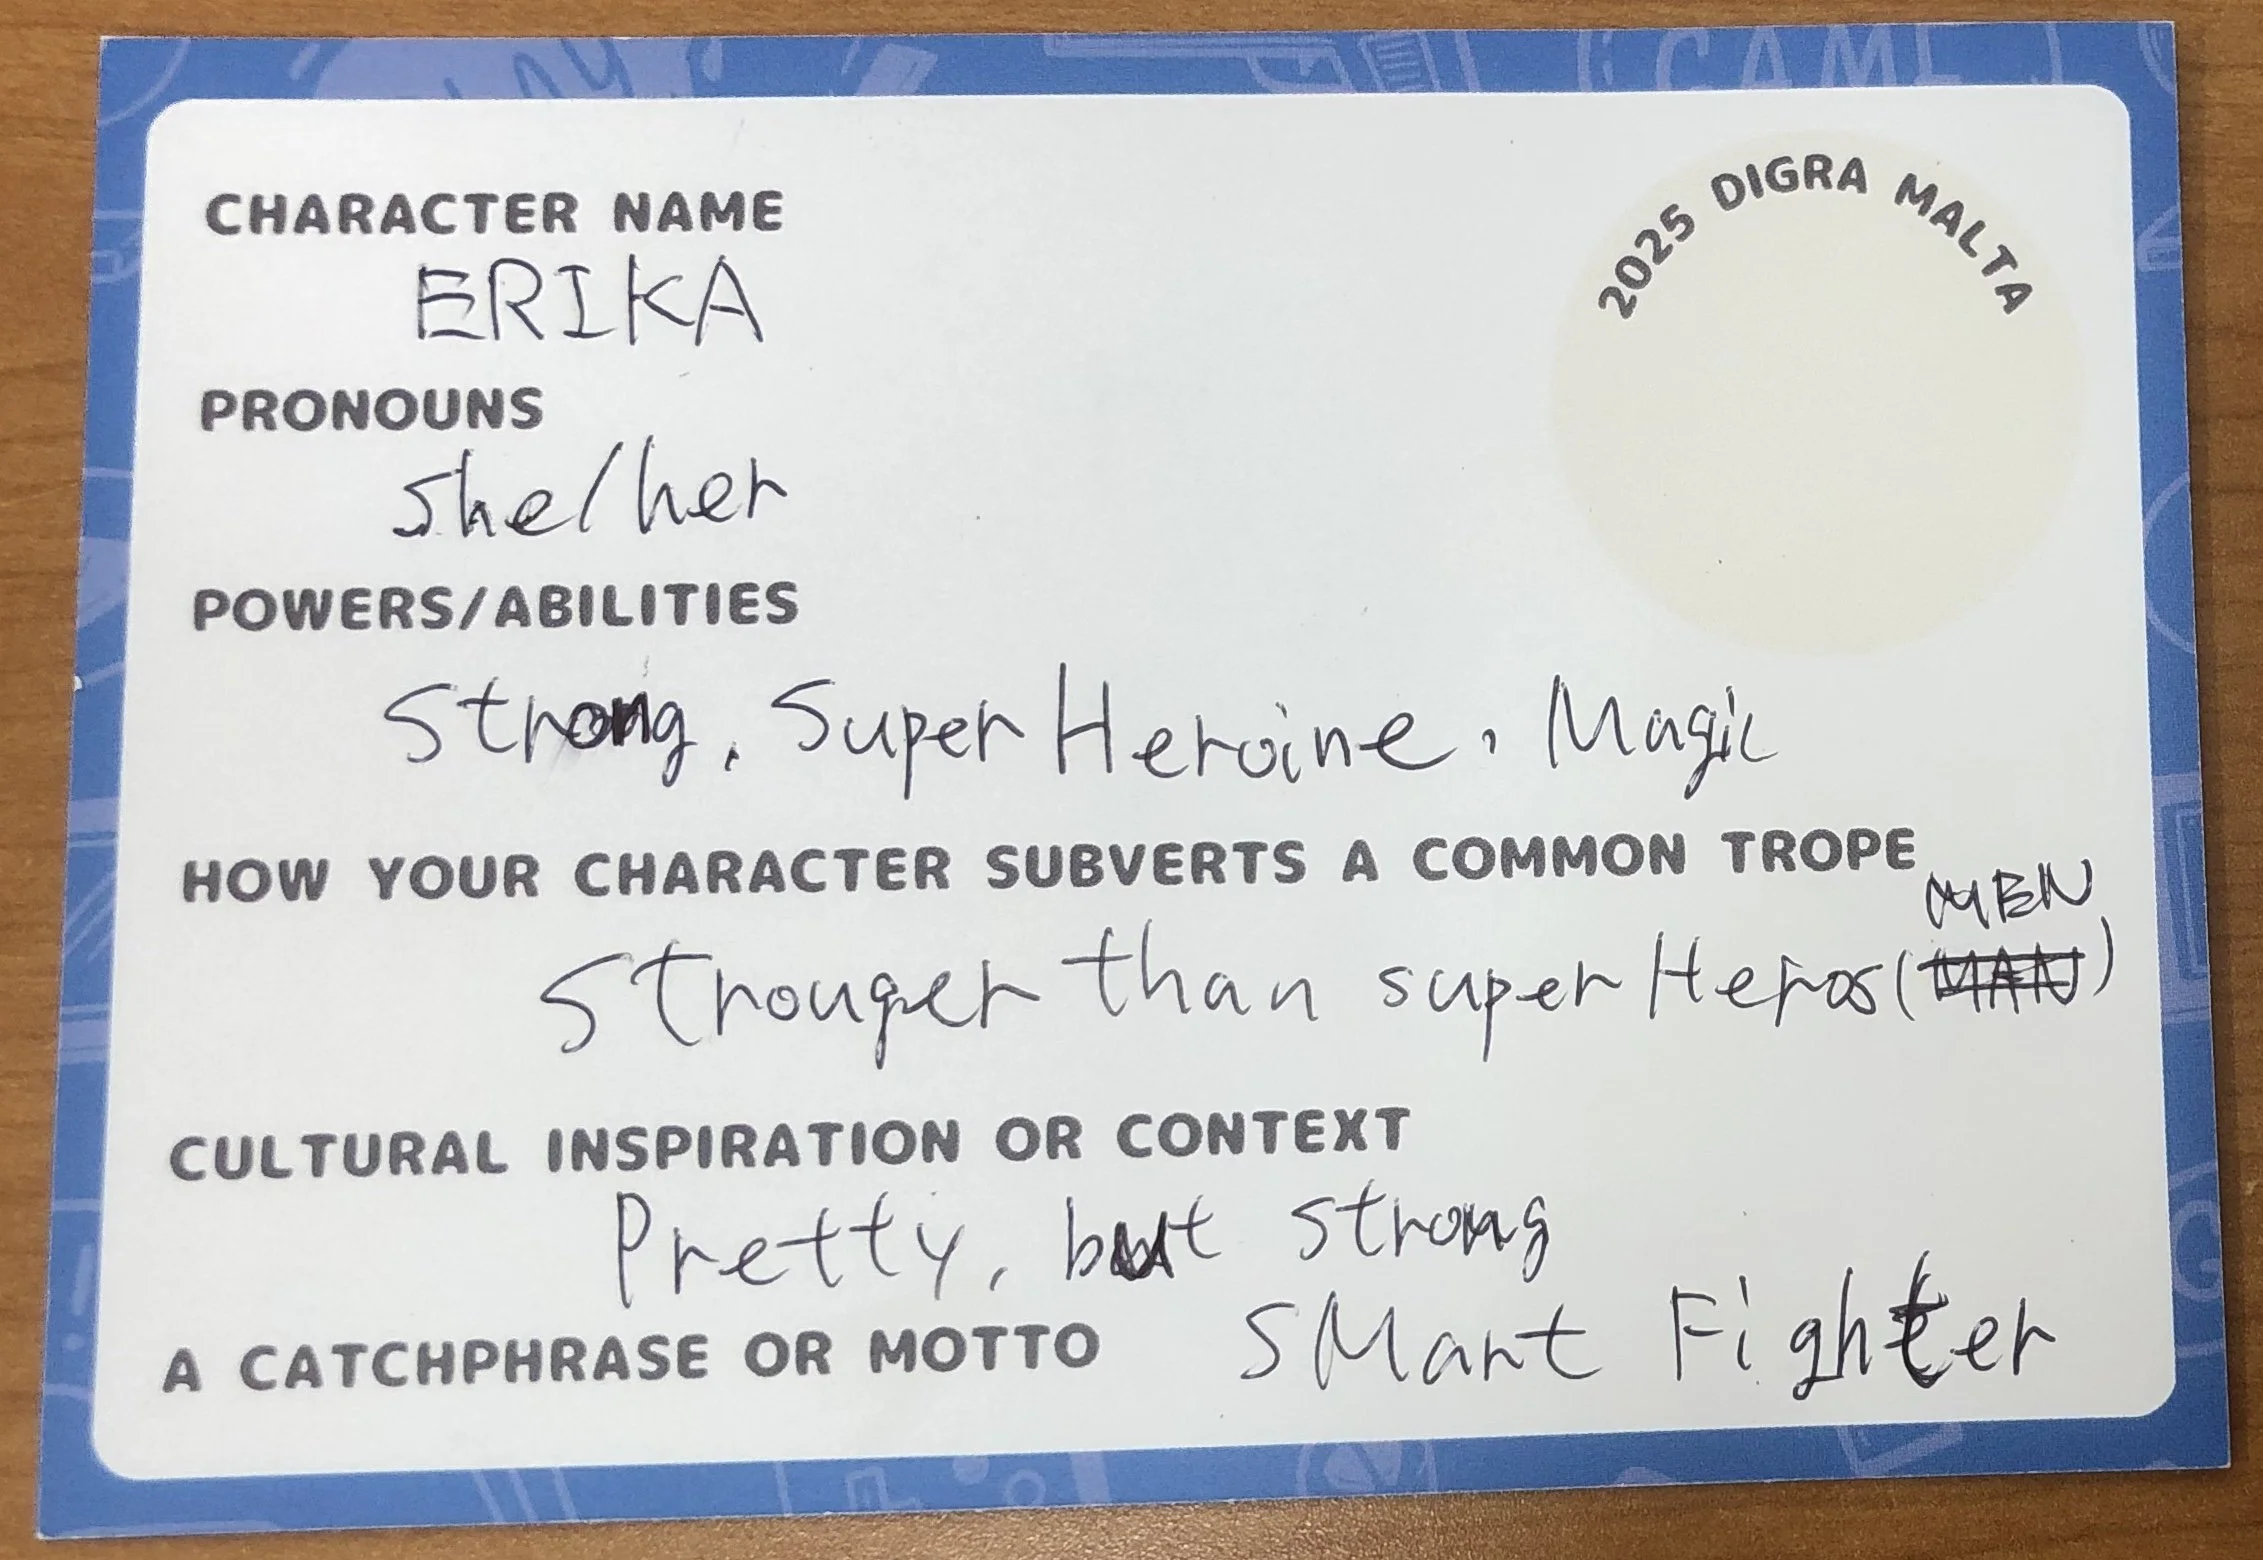 2025 DIGRA MALTA
CHARACTER NAME
ERIKA
PRONOUNS
she/her
POWERS/ABILITIES
Strong, Super Heroine, Magic
HOW YOUR CHARACTER SUBVERTS A COMMON TROPE
MEN
Stronger than super Heros (MAN)
CULTURAL INSPIRATION OR CONTEXT
Pretty, but strong
A CATCHPHRASE OR MOTTO SMart Fighter